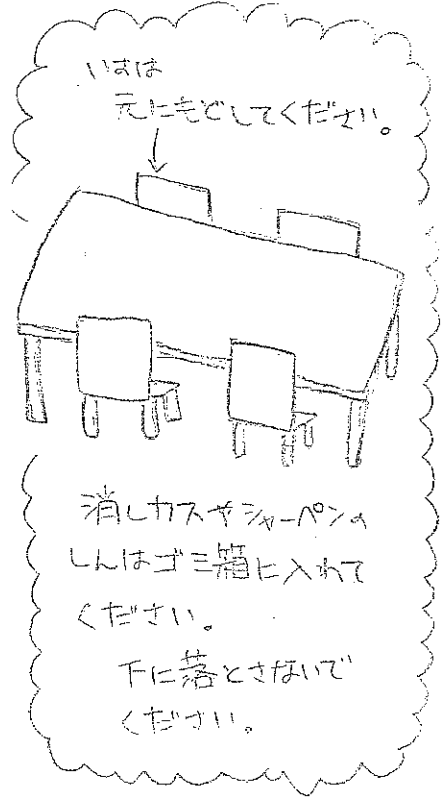 いすは
元にもどしてください。
消しカスやシャーペンの
しんはゴミ箱に入れて
ください。
下に落とさないで
ください。